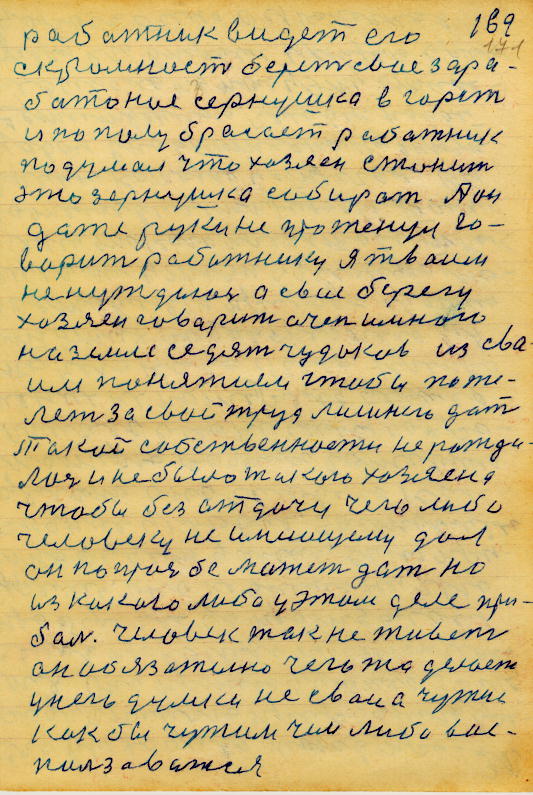 169
171
работник видет его
скромност берет свое зара-
батоное зернушка в горст
и по полу бросает работник
подумал что хозяен стонит
это зернушка собират А он
даже руки не протенул го-
ворит работнику я твоим
ненуждаюс а свое берегу
хозяен говорит очен много
на земле седят чудоков из сва-
им понятием чтобы поже-
лет за свой труд лишнего дат
Такой собственности не рожда-
лос и небыло такого хозяена
чтобы без отдачи чего либо
человеку не имющему дал
он попрозбе может дат но
из какого либо у этом деле при-
бал. человек так не живет
он обязателно чегота делает
у него думки не свои а чужие
как бы чужим чем либо вос-
ползаватся